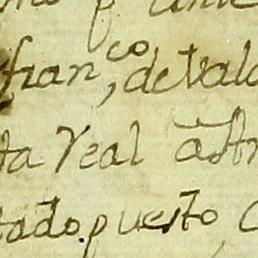 fran,co de Vald
ta real astr
tado puesto